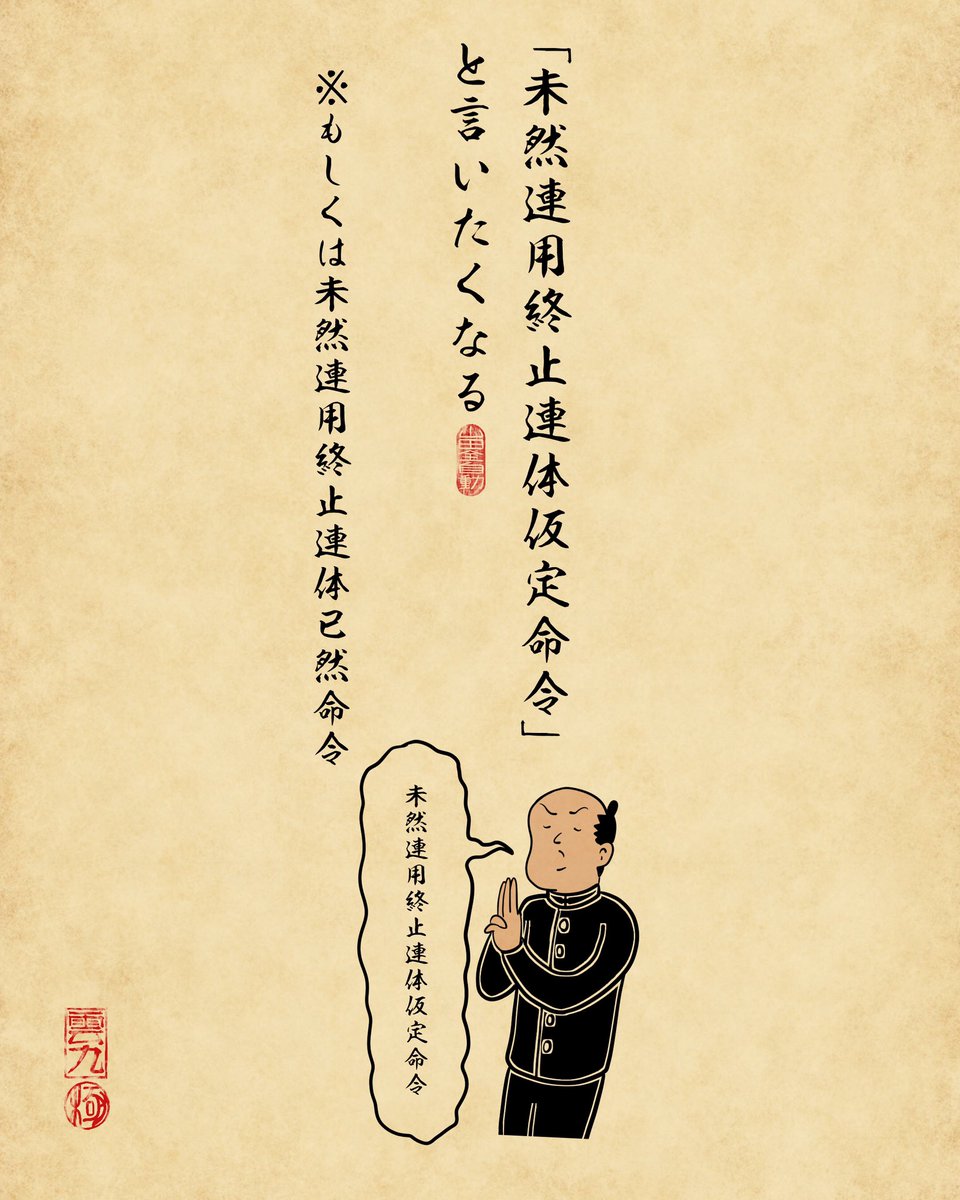 「未然連用終止連体仮定命令」
と言いたくなる
※もしくは未然連用終止連体已然命令
未然連用終止連体仮定命令